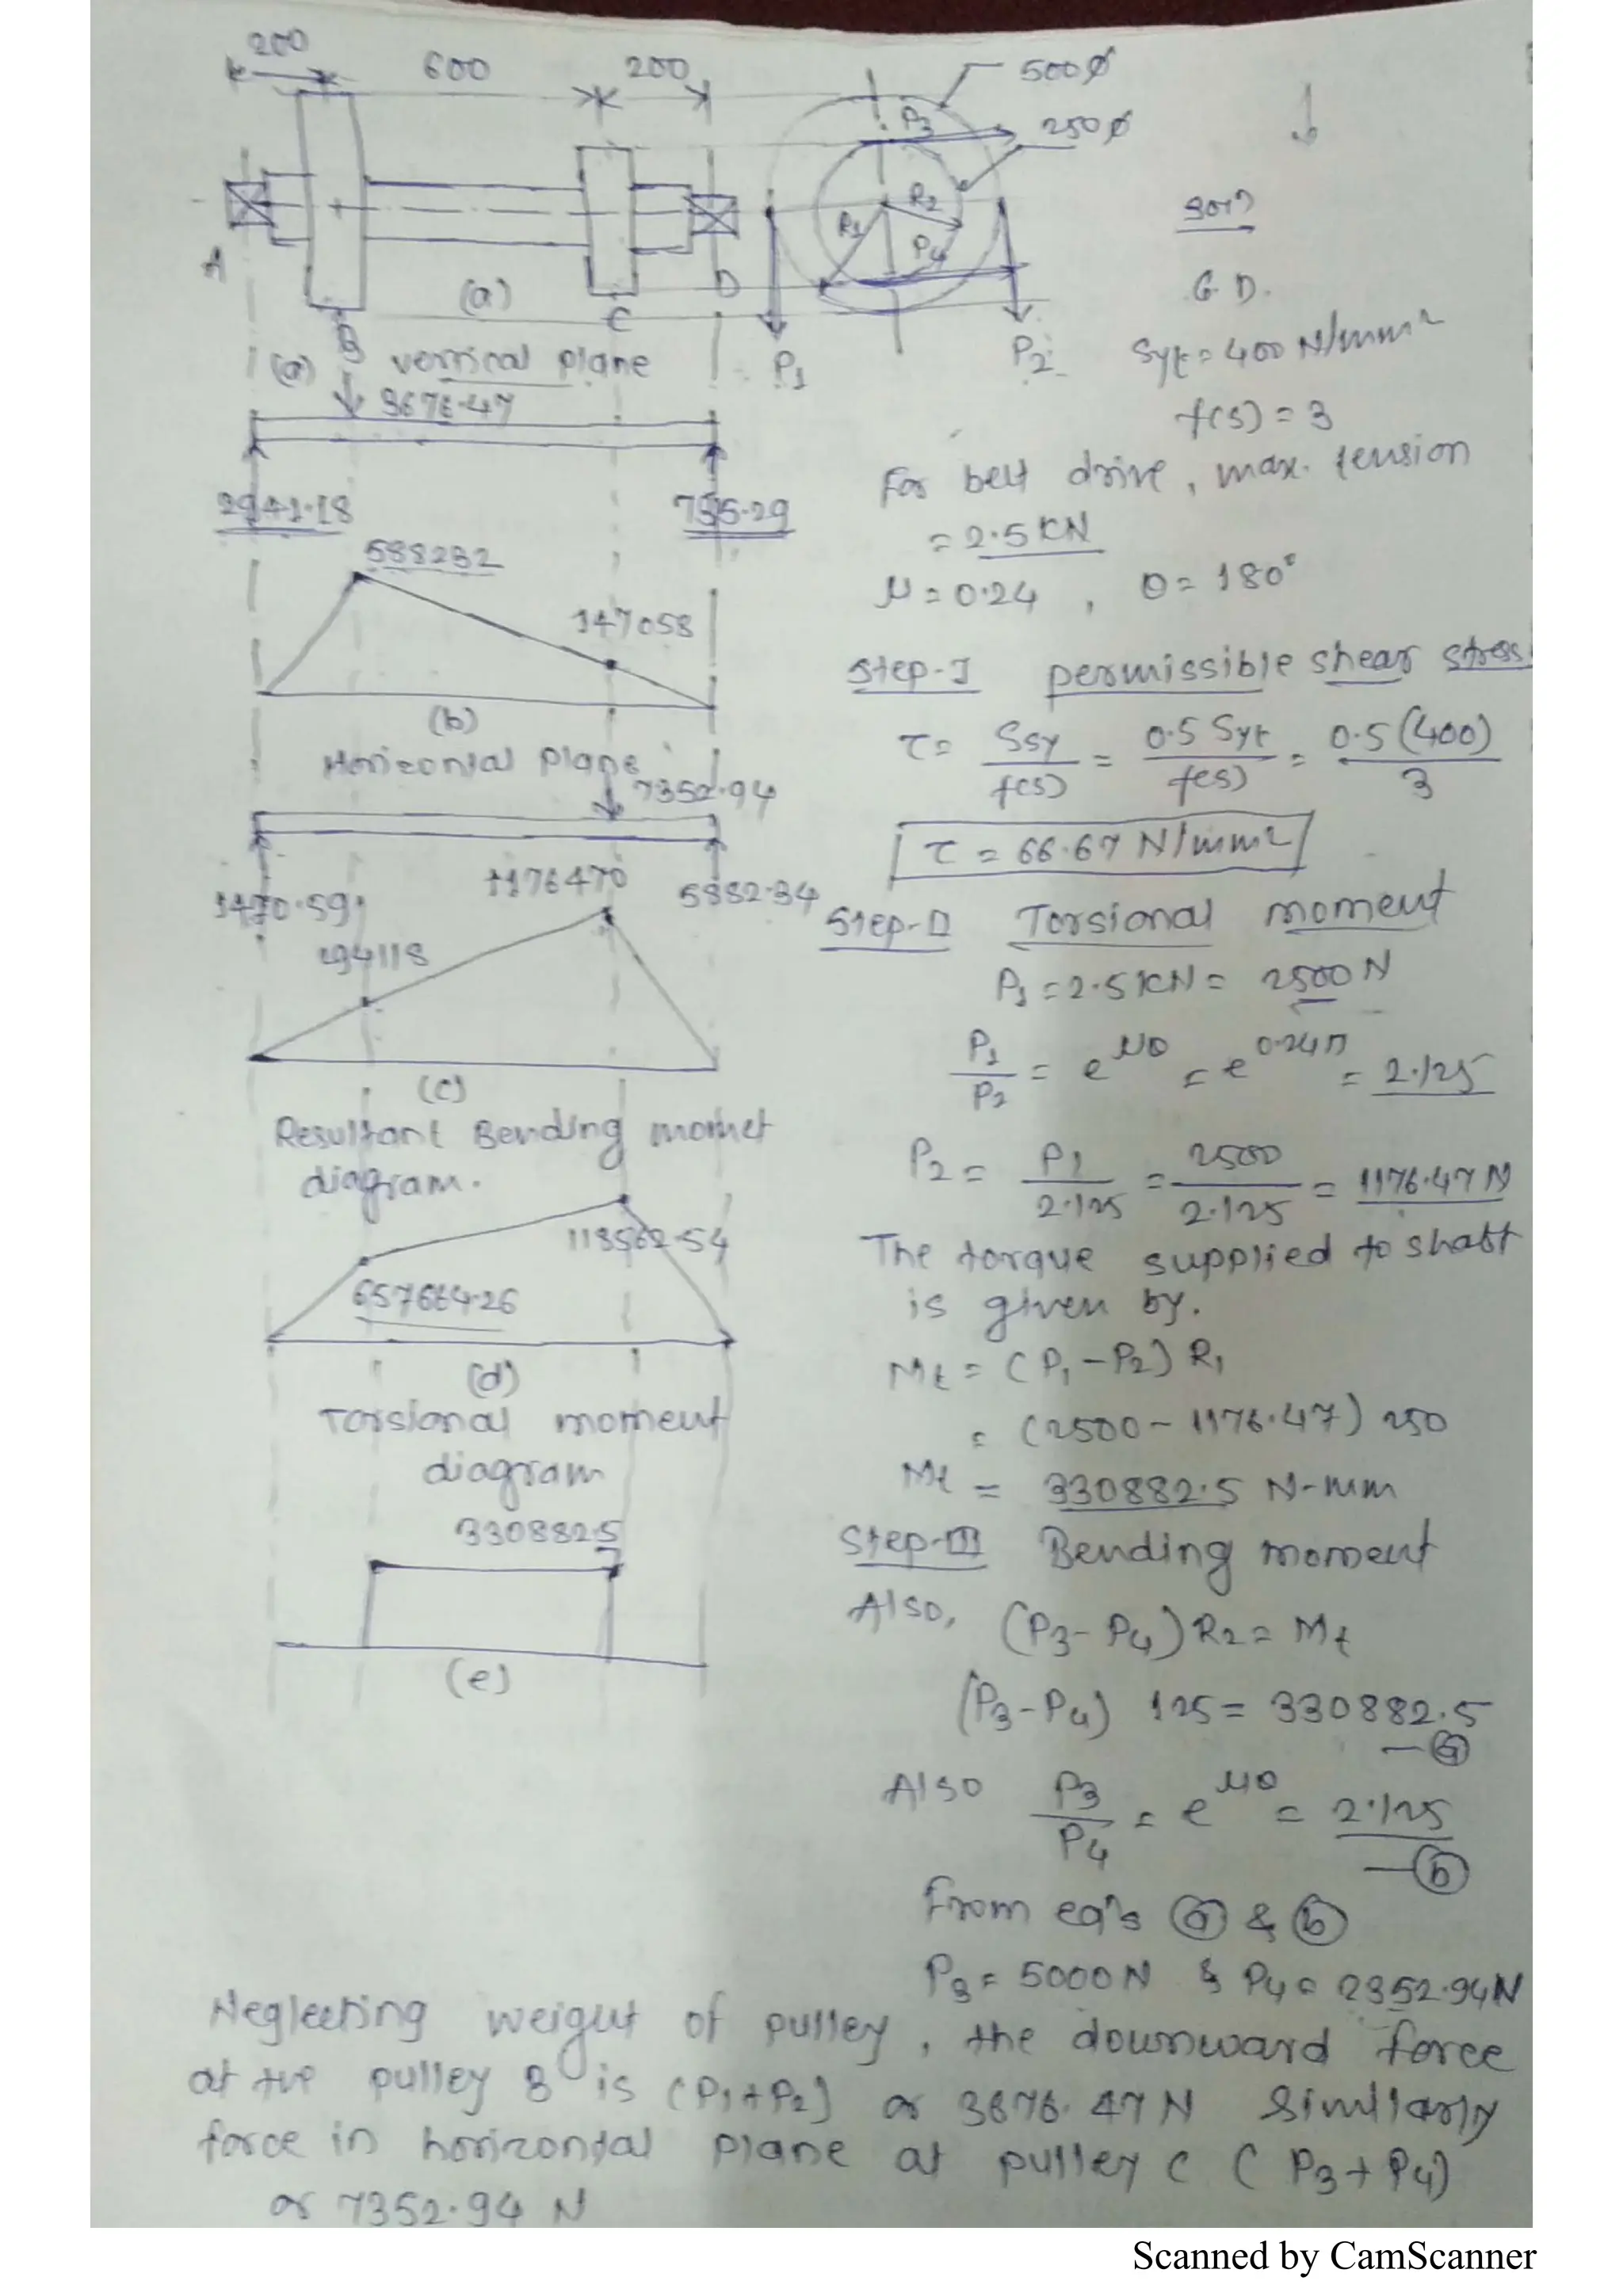 200 600 200
500Ø
250Ø
P3
R2
R1
P4
A
B
C
D
(a)
P1
P2
(a) vertical plane
3676.47
2941.18
735.29
588232
147058
(b)
Horizontal plane
7352.94
1176470
1470.59
5882.34
294118
(c)
Resultant Bending momet
diagram.
118562.54
657664.26
(d)
Torsional moment
diagram
330882.5
(e)
soln
G.D.
Syt = 400 N/mm2
f(s) = 3
For belt drive, max. tension
= 2.5 KN
μ = 0.24 , θ = 180°
Step-I permissible shear stress
τ = Ssy/f(s) = 0.5 Syt/f(s) = 0.5(400)/3
τ = 66.67 N/mm2
Step-II Torsional moment
P1 = 2.5 KN = 2500 N
P1/P2 = e^μθ = e^0.24π = 2.125
P2 = P1/2.125 = 2500/2.125 = 1176.47 N
The torque supplied to shaft
is given by.
Mt = (P1 - P2) R1
= (2500 - 1176.47) 250
Mt = 330882.5 N-mm
Step-III Bending moment
Also, (P3 - P4) R2 = Mt
(P3 - P4) 125 = 330882.5
— (a)
Also P3/P4 = e^μθ = 2.125
— (b)
From eqn's (a) & (b)
P3 = 5000 N & P4 = 2352.94 N
Neglecting weight of pulley, the downward force
at the pulley B is (P1+P2) or 3676.47 N Similarly
force in horizontal plane at pulley C (P3+P4)
or 7352.94 N
Scanned by CamScanner